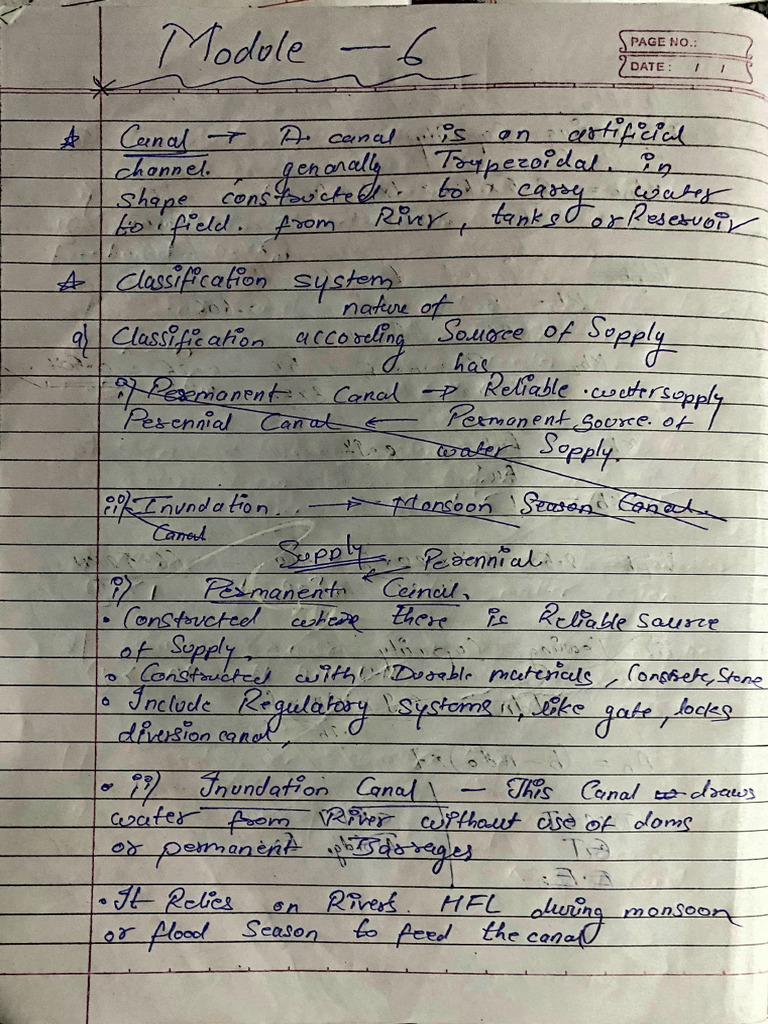 Module - 6
PAGE NO.:
DATE: / /
☆ Canal → A canal is an artificial
channel. generally Trapezoidal. in
shape constructed. to carry water
to field. from River, tanks or Reservoir
☆ Classification system
nature of
a) Classification according Source of Supply
has
i) Peremanent Canal → Reliable water supply
Perennial Canal ← Permanent source of
water Supply.
ii) Inundation → Monsoon Season Canal.
Canal
Supply
← Perennial
i) Permanent Canal.
• Constructed where there is Reliable source
of Supply.
• Constructed with Durable materials, Concrete, Stone
• Include Regulatory systems, like gate, locks
diversion canal,
• ii) Inundation Canal - This Canal draws
water from River without use of dams
or permanent Barrages
• It Relies on Rivers. HFL during monsoon
or flood Season to feed the canal